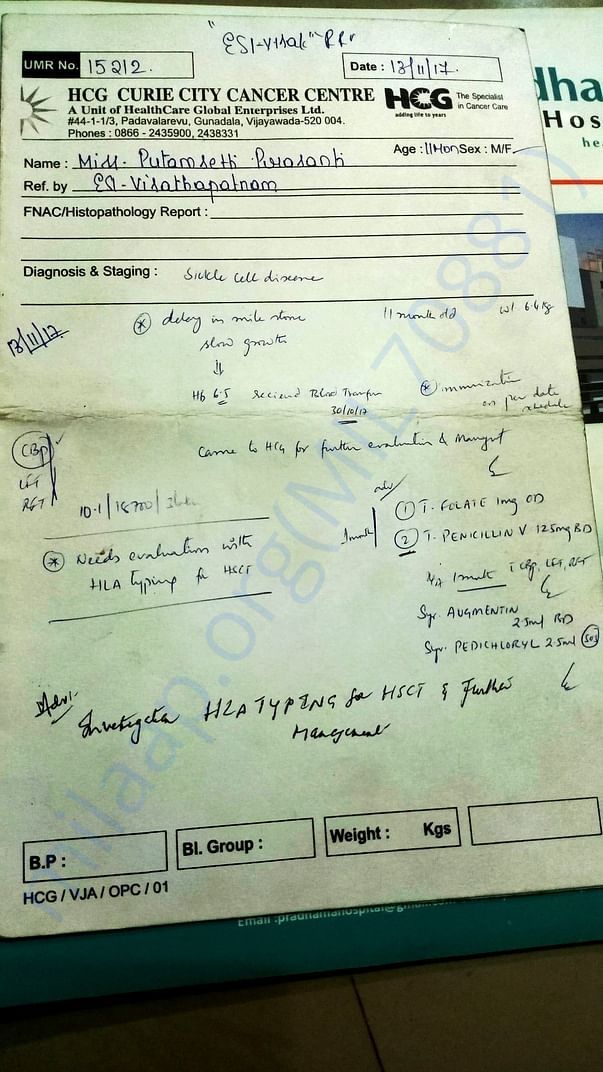 "ESI-Visak" RR
UMR No. 15212.
Date : 13/11/17.
HCG CURIE CITY CANCER CENTRE
A Unit of HealthCare Global Enterprises Ltd.
#44-1-1/3, Padavalarevu, Gunadala, Vijayawada-520 004.
Phones : 0866 - 2435900, 2438331
HCG
adding life to years
The Specialist
in Cancer Care
dha
Hos
hea
Name : Miss. Putamsetti Prasanti
Age : 11Mon Sex : M/F
Ref. by ESI-Visakhapatnam
FNAC/Histopathology Report :
Diagnosis & Staging : Sickle cell disease
13/11/17
* delay in mile stone
slow growth
11 month old
wt 6.4 kg
Hb 6.5 Received Blood Transfusn
30/10/17
* immunization
as per date
schedule
Came to HCG for further evaluation & Mangmt
CBP
LFT
RFT
10.1/18700/
* Needs evaluation with
HLA typing for HSCT
adv
1 month
1 T. FOLATE 1mg OD
2 T. PENICILLIN V 125mg BD
1 month CBP, LFT, RFT
Syr. AUGMENTIN
2.5ml BD
Syr. PEDICHLORYL 2.5ml SOS
Adv:
Investigation HLA TYPING for HSCT & Further
Management
B.P :
Bl. Group :
Weight : Kgs
HCG / VJA / OPC / 01
Email :pradhamahospital@gmail.com
milaap.org(MIL70881)